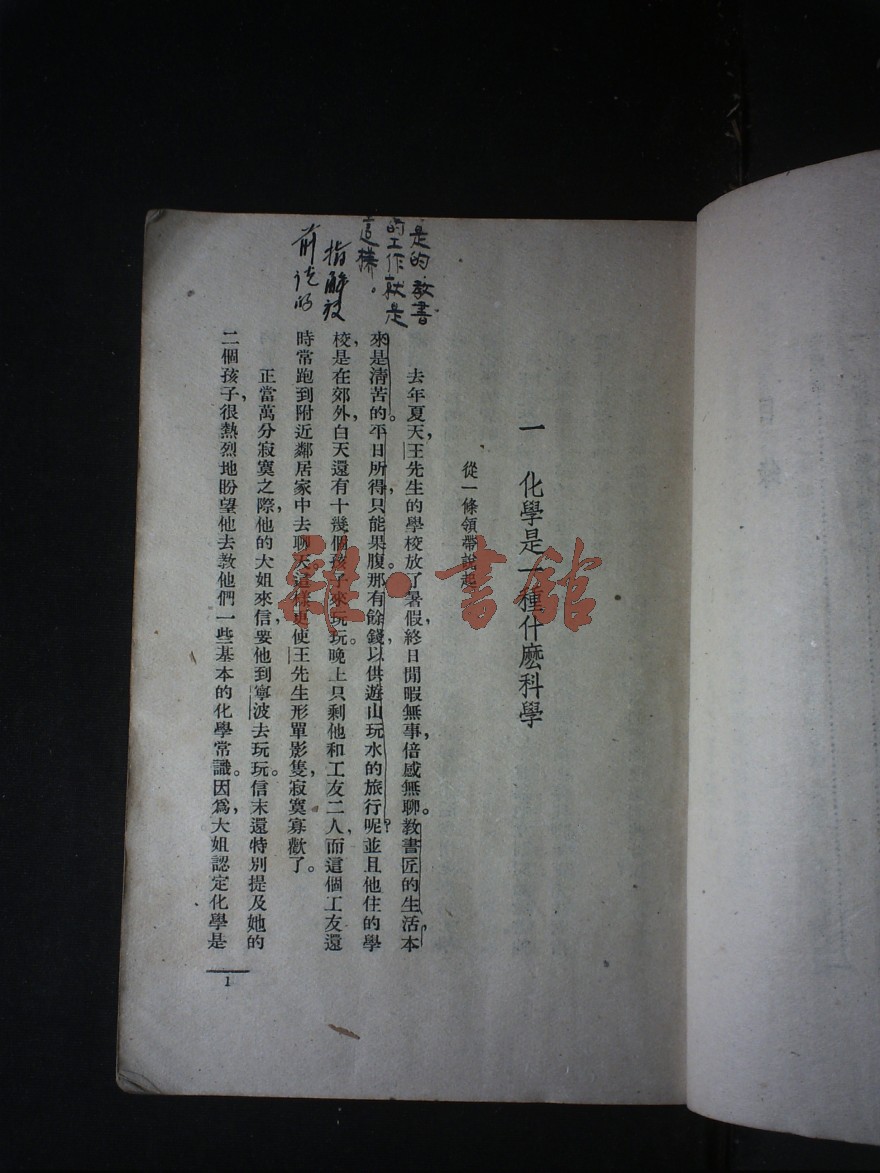 一 化學是一種什麽科學
從一條領帶說起
去年夏天，王先生的學校放了暑假，終日閒暇無事，倍感無聊。教書匠的生活，本
來是清苦的。平日所得，只能果腹，那有餘錢，以供遊山玩水的旅行呢？並且他住的學
校，是在郊外，白天還有十幾個孩子來玩玩。晚上只剩他和工友二人，而這個工友還
時常跑到附近鄰居家中去聊天。這樣更使王先生形單影隻，寂寞寡歡了。
正當萬分寂寞之際，他的大姐來信，要他到寧波去玩玩。信末還特別提及她的
二個孩子，很熱烈地盼望他去教他們一些基本的化學常識。因爲，大姐認定化學是
1
是的教書
的工作就是
這樣。
指解放
前說的
雜·書館
目錄